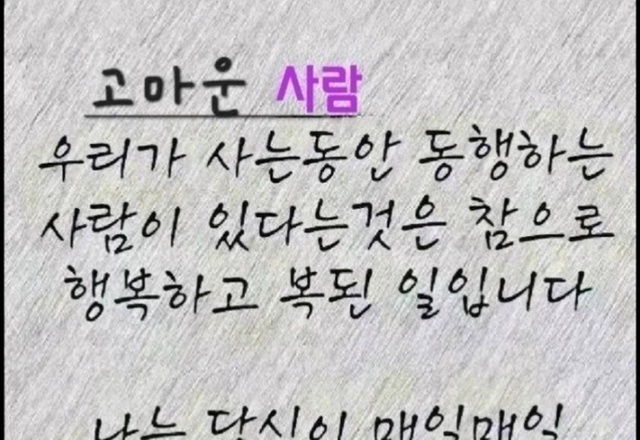 고마운 사람
우리가 사는동안 동행하는
사람이 있다는것은 참으로
행복하고 복된 일입니다
나는 당신이 매일매일